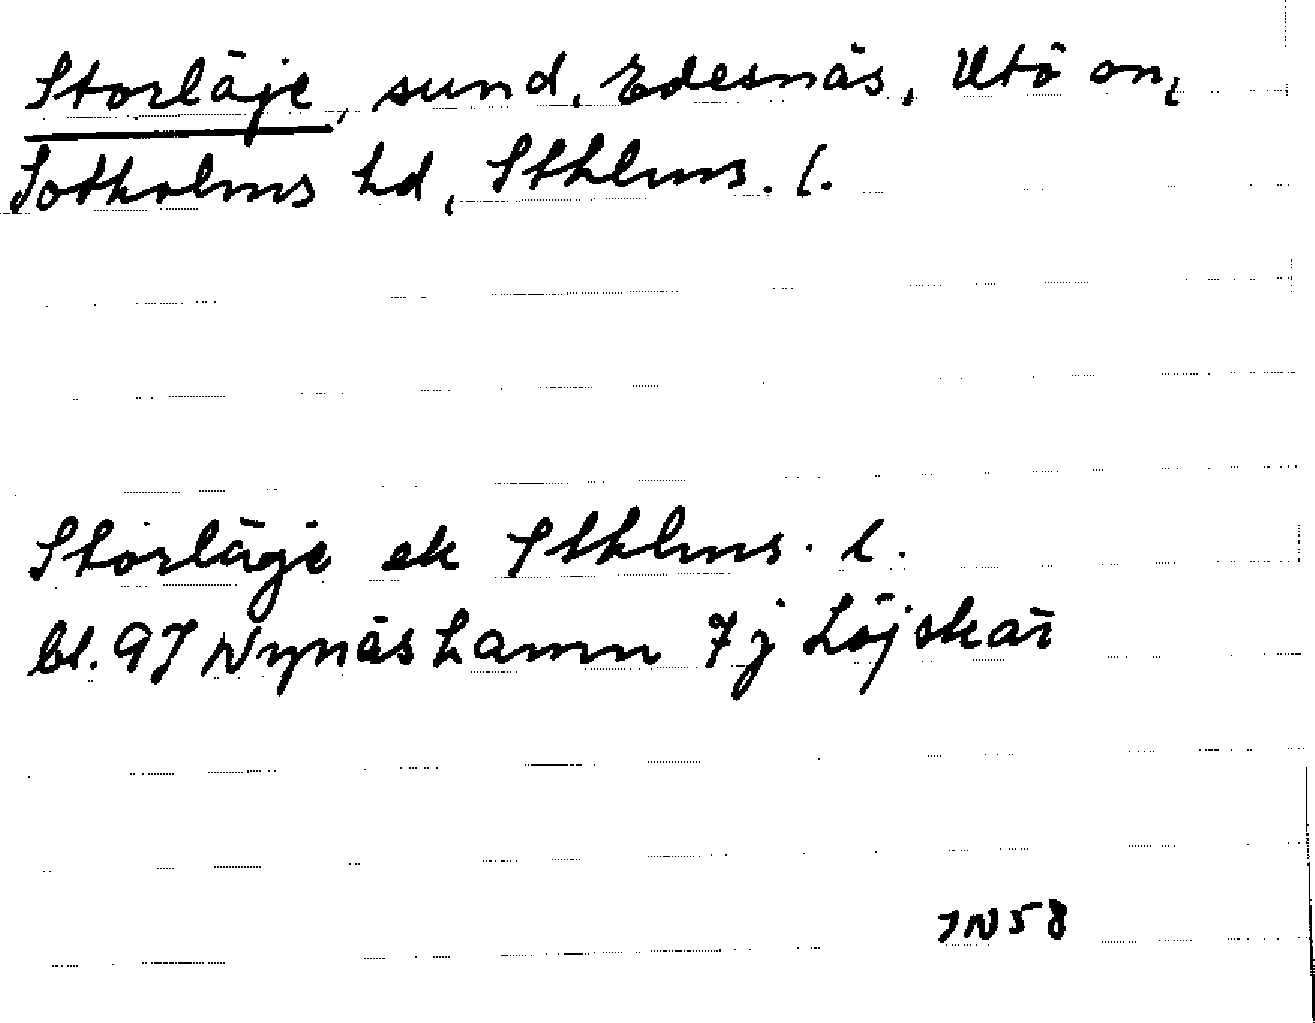 Storläje, sund, Edesnäs, Utö on,
Sotholms hd, Sthlms. l.
Storläge ek Sthlms. l.
bl. 97 Nynäshamn 7j Löjskär
IN58